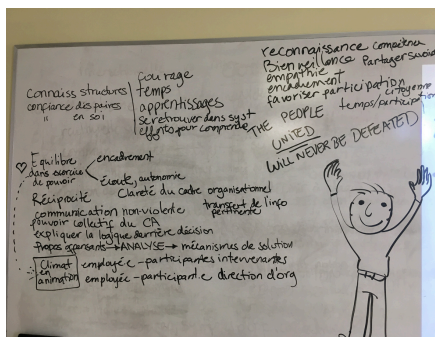 connaiss structures
confiance des paires
" en soi
courage
temps
apprentissages
se retrouver dans syst
efforts pour comprendre
reconnaissance compétence
Bienveillance Partager savoir
empathie
encadrement
favoriser participation
citoyenne
temps/participation
THE PEOPLE
UNITED
WILL NEVER BE DEFEATED
Équilibre
dans exercice
de pouvoir
encadrement
Écoute, autonomie
Réciprocité
Clareté du cadre organisationnel
communication non-violente
transfert de l'info
pertinente
pouvoir collectif du CA
expliquer la logique derrière décision
Propos offensants → ANALYSE → mécanismes de solution
Climat
en
animation
employée - participantes intervenantes
employée - participant.e direction d'org